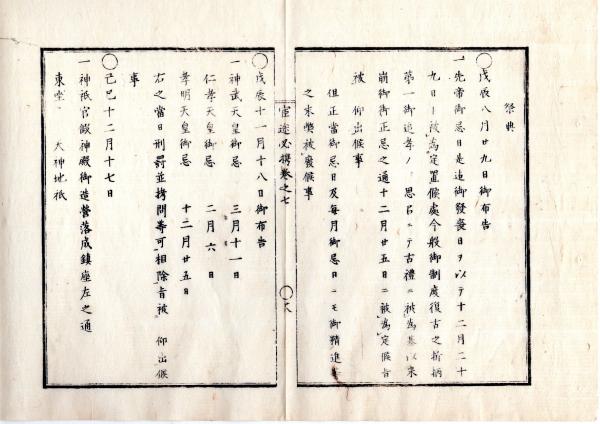 祭典
◯戊辰八月廿九日御布告
一先帝御忌日是迠御發喪日ヲ以テ十二月二十
九日ト被爲定置候處今般御制度復古之折柄
第一御追孝ノ 思召ニテ古禮ニ被爲基以来
崩御御正忌之通十二月廿五日ニ被爲定候旨
被 仰出候事
但正當御忌日及每月御忌日ニモ御精進
之末弊被廢候事
宦途必携卷之七
◯戊辰十一月十八日御布告
一神武天皇御忌 三月十一日
仁孝天皇御忌 二月六日
孝明天皇御忌 十二月廿五日
右之當日刑罰並拷問等可相除旨被 仰出候
事
◯己巳十二月十七日
一神祇官假神殿御造營落成鎮座左之通
東座 天神地祇